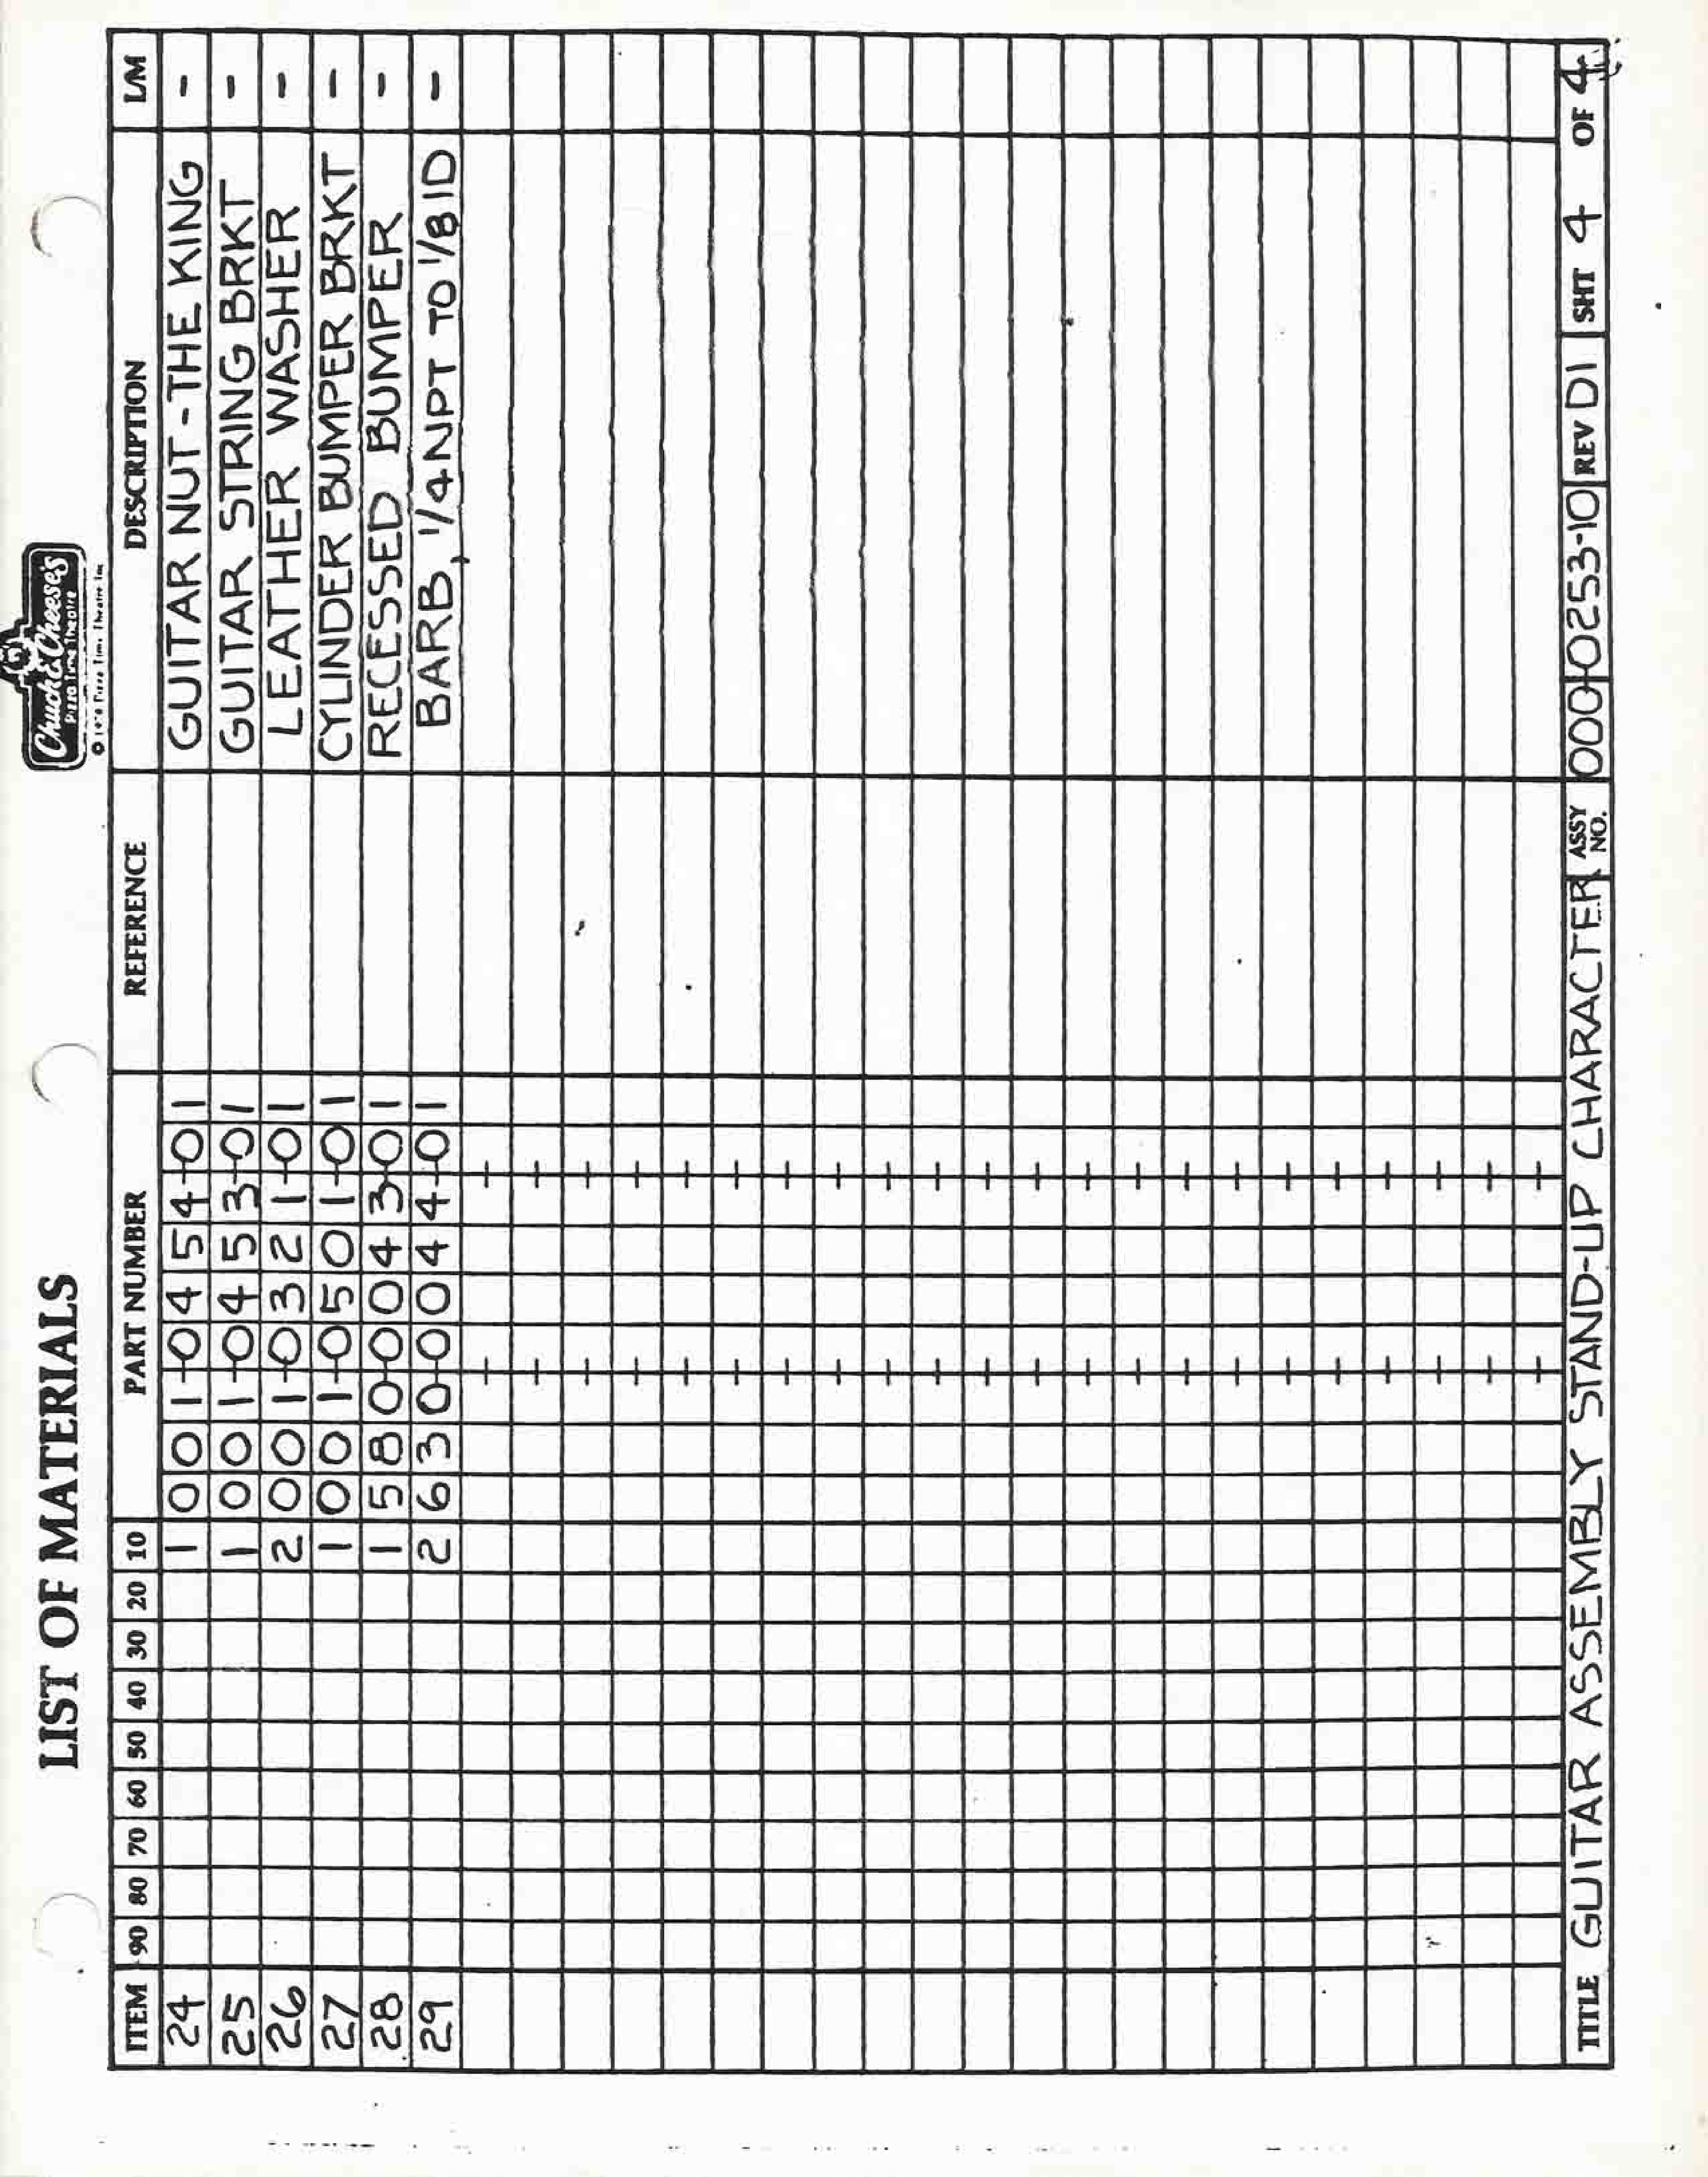 LIST OF MATERIALS
Chuck E. Cheese's
Pizza Time Theatre
ITEM 90 80 70 60 50 40 30 20 10 PART NUMBER REFERENCE DESCRIPTION L/M
24 1 001-0454-01 GUITAR NUT-THE KING -
25 1 001-0453-01 GUITAR STRING BRKT -
26 2 001-0321-01 LEATHER WASHER -
27 1 001-0501-01 CYLINDER BUMPER BRKT -
28 1 580-0043-01 RECESSED BUMPER -
29 2 630-0044-01 BARB, 1/4NPT TO 1/8ID -
TITLE GUITAR ASSEMBLY STAND-UP CHARACTER ASSY NO. 000-0253-10 REV D1 SHT 4 OF 4